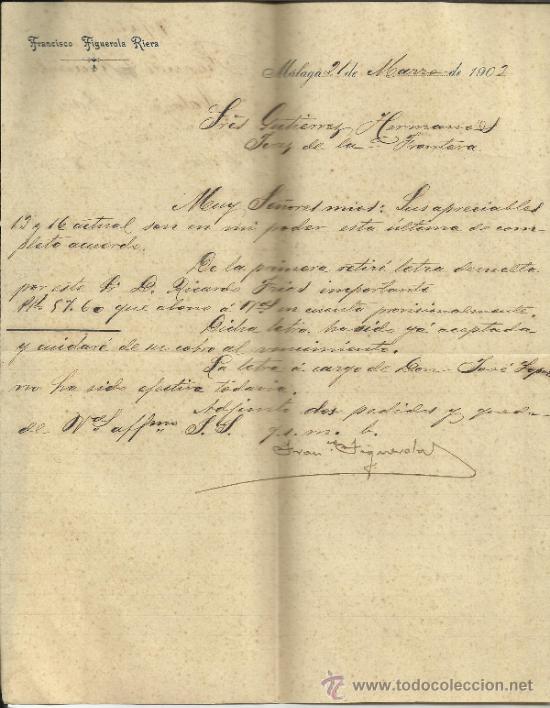 Francisco Figuerola Riera
Málaga 21 de Marzo de 1902
Sres Gutiérrez Hermanos
Jerez de la Frontera
Muy Señores mios: Sus apreciables
12 y 16 actual son en mi poder esta última de com-
pleto acuerdo.
De la primera retiré letra devuelta
por este Sr D. Ricardo Frias importante
Pts 57.60 que abono á Vds en cuenta provisionalmente.
Dicha letra ha sido yá aceptada
y cuidaré de su cobro al vencimiento.
La letra á cargo de Don José
no ha sido efectiva todavia.
Adjunto dos pedidos y quedo
de Vds affmo S.S. q.s.m.b.
Franco Figuerola
todocoleccion
www.todocoleccion.net